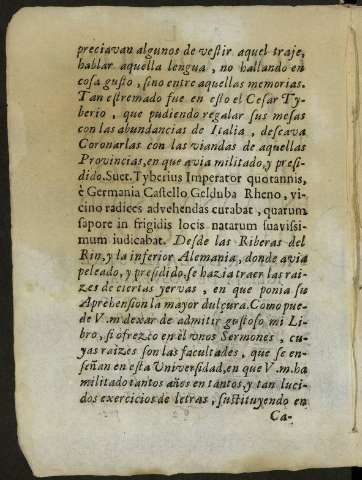 preciavan algunos de vestir aquel traje,
hablar aquella lengua, no hallando en
cosa gusto, sino entre aquellas memorias.
Tan estremado fue en esto el Cesar Ty-
berio, que pudiendo regalar sus mesas
con las abundancias de Italia, deseava
Coronarlas con las viandas de aquellas
Provincias, en que avia militado, y presi-
dido. Suet. Tyberius Imperator quotannis,
è Germania Castello Gelduba Rheno, vi-
cino radices advehendas curabat, quarum
sapore in frigidis locis natarum suavissi-
mum iudicabat. Desde las Riberas del
Rin, y la inferior Alemania, donde avia
peleado, y presidido, se hazia traer las rai-
zes de ciertas yervas, en que ponia su
Aprehension la mayor dulçura. Como pue-
de V.m dexar de admitir gustoso mi Li-
bro, si ofrezco en el unos Sermones, cu-
yas raizes son las facultades, que se en-
señan en esta Universidad, en que V.m. ha
militado tantos años en tantos, y tan luci-
dos exercicios de letras, sustituyendo en
Ca-